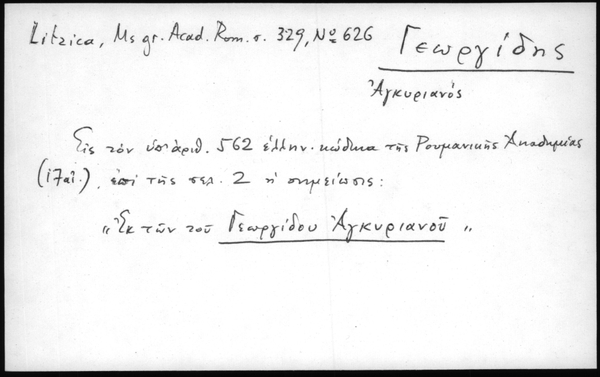 Litzica, Ms gr. Acad. Rom. σ. 329, Nο 626
Γεωργίδης
Ἀγκυριανός
Εἰς τὸν ὑπ' ἀριθ. 562 ἑλλην. κώδικα τῆς Ρουμανικῆς Ἀκαδημίας
(ιζ' αἰ.), ἐπὶ τῆς σελ. 2 ἡ σημείωσις:
„ Ἐκ τῶν τοῦ Γεωργίδου Ἀγκυριανοῦ „